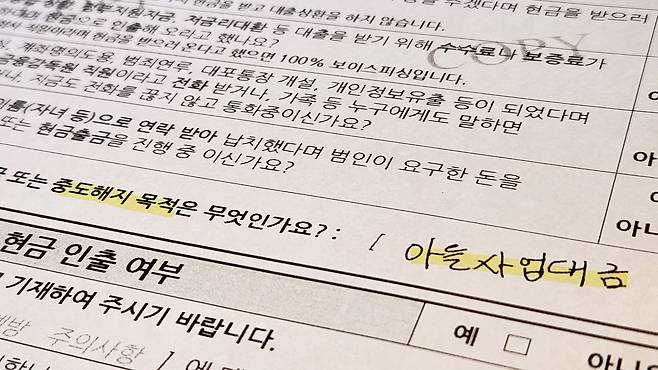 현금을 받고 대출상환을 하지 않습니다.
겠다며 현금을 받으러
정부지원자금, 저금리대환 등 대출을 받기 위해 수수료나 보증료가
현금으로 인출해 오라고 했나요?
현금을 받으러 온다고 했으면 100% 보이스피싱입니다.
COPY
계좌명의도용, 범죄연루, 대포통장 개설, 개인정보유출 등이 되었다며
금융감독원 직원이라고 전화 받거나, 가족 등 누구에게도 말하면
지금도 전화를 끊지 않고 통화중이신가요?
(자녀 등)으로 연락 받아 납치했다며 범인이 요구한 돈을
또는 현금출금을 진행 중 이신가요?
또는 중도해지 목적은 무엇인가요? : [ 아들사업대금
현금 인출 여부
기재하여 주시기 바랍니다.
예 □
주의사항 ]